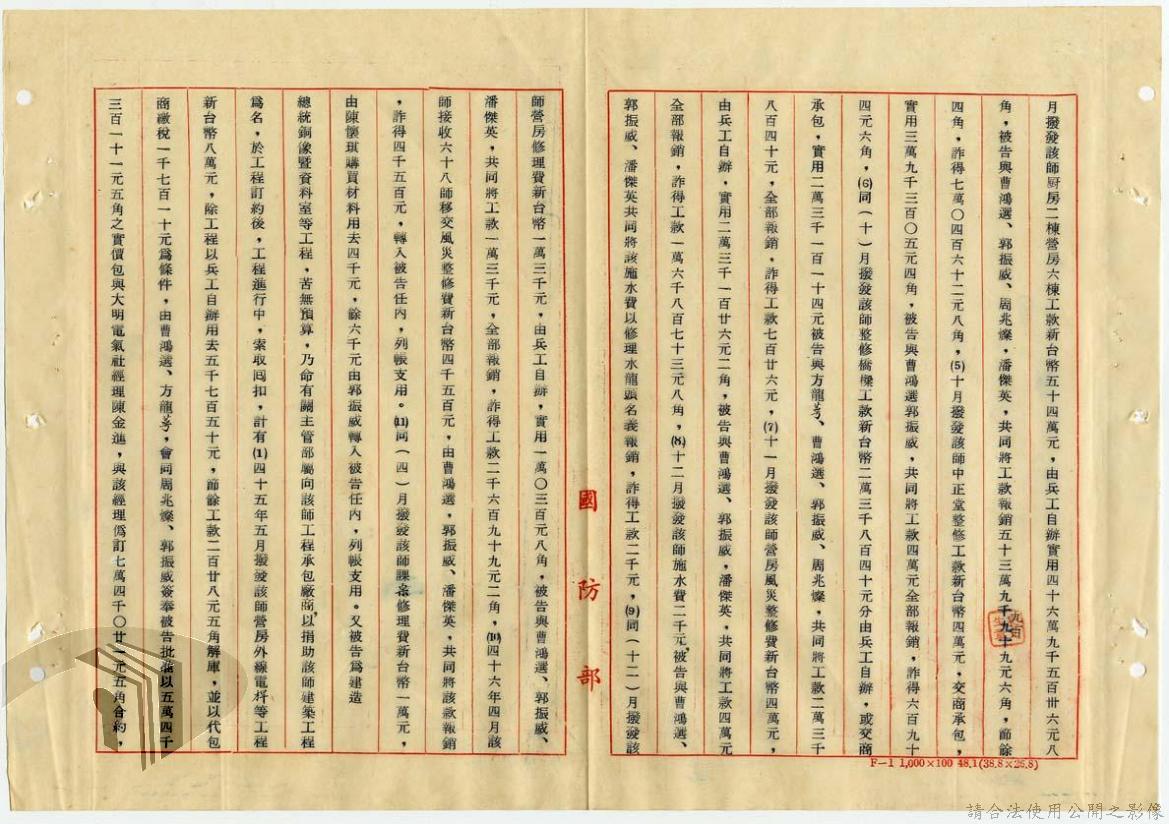 月撥發該師厨房二棟營房六棟工款新台幣五十四萬元，由兵工自辦實用四十六萬九千五百卅六元八
角，被告與曹鴻選、郭振威、周兆燦，潘傑英，共同將工款報銷五十三萬九千九十九元六角，節餘
四角，詐得七萬〇四百六十二元八角，(5)十月撥發該師中正堂整修工款新台幣四萬元，交商承包，
實用三萬九千三百〇五元四角，被告與曹鴻選郭振威，共同將工款四萬元全部報銷，詐得六百九十
四元六角，(6)同（十）月撥發該師整修橋樑工款新台幣二萬三千八百四十元分由兵工自辦，或交商
承包，實用二萬三千一百一十四元被告與方龍芎、曹鴻選、郭振威、周兆燦，共同將工款二萬三千
八百四十元，全部報銷，詐得工款七百廿六元，(7)十一月撥發該師營房風災整修費新台幣四萬元，
由兵工自辦，實用二萬三千一百廿六元二角，被告與曹鴻選、郭振威，潘傑英，共同將工款四萬元
全部報銷，詐得工款一萬六千八百七十三元八角，(8)十二月撥發該師施水費二千元，被告與曹鴻選、
郭振威、潘傑英共同將該施水費以修理水龍頭名義報銷，詐得工款二千元，(9)同（十二）月撥發該
國防部
F—1 1,000×100 48.1(38.8×26.8)
師營房修理費新台幣一萬三千元，由兵工自辦，實用一萬〇三百元八角，被告與曹鴻選、郭振威、
潘傑英，共同將工款一萬三千元，全部報銷，詐得工款二千六百九十九元二角，(10)四十六年四月該
師接收六十八師移交風災整修費新台幣四千五百元，由曹鴻選，郭振威、潘傑英，共同將該款報銷
，詐得四千五百元，轉入被告任內，列帳支用。(11)同（四）月撥發該師課桌修理費新台幣一萬元，
由陳懷琪購買材料用去四千元，餘六千元由郭振威轉入被告任內，列帳支用。又被告爲建造
總統銅像暨資料室等工程，苦無預算，乃命有關主管部屬向該師工程承包廠商，以捐助該師建築工程
爲名，於工程訂約後，工程進行中，索取囘扣，計有(1)四十五年五月撥發該師營房外線電桿等工程
新台幣八萬元，除工程以兵工自辦用去五千七百五十元，節餘工款二百廿八元五角解庫，並以代包
商繳稅一千七百一十元爲條件，由曹鴻選、方龍芎，會同周兆燦、郭振威簽奉被告批准以五萬四千
三百一十一元五角之實價包與大明電氣社經理陳金進，與該經理僞訂七萬四千〇廿一元五角合約，
請合法使用公開之影像